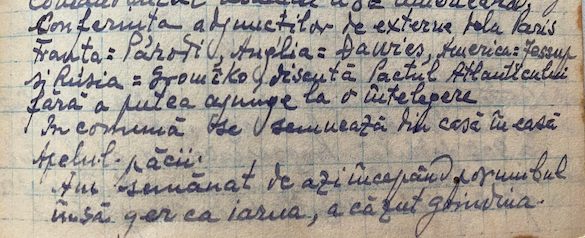 Conferința adjuncților de externe dela Paris
Franța = Párodi, Anglia = Dawies, America = Jessup
și Rusia = Gromîko, discută Pactul Atlanticului
fără a putea ajunge la o înțelegere
In comună se semnează din casă în casă
Apelul păcii.
Am semănat de azi începând porumbul
însă ger ca iarna, a căzut grindina.